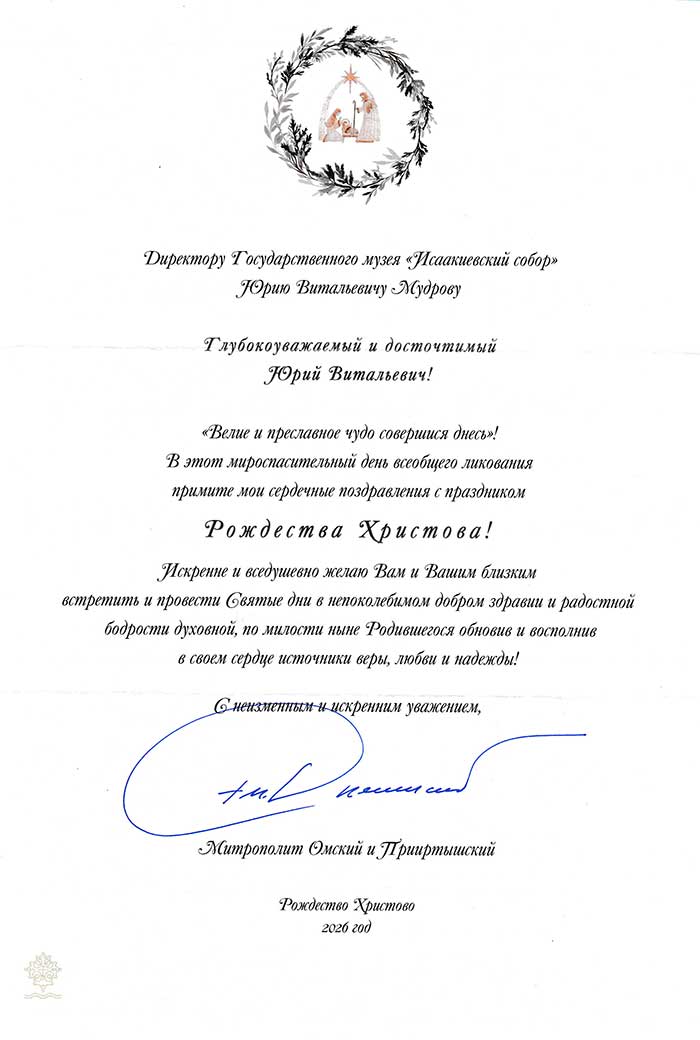 Директору Государственного музея «Исаакиевский собор»
Юрию Витальевичу Мудрову
Глубокоуважаемый и досточтимый
Юрий Витальевич!
«Велие и преславное чудо совершися днесь»!
В этот мироспасительный день всеобщего ликования
примите мои сердечные поздравления с праздником
Рождества Христова!
Искренне и вседушевно желаю Вам и Вашим близким
встретить и провести Святые дни в непоколебимом добром здравии и радостной
бодрости духовной, по милости ныне Родившегося обновив и восполнив
в своем сердце источники веры, любви и надежды!
С неизменным и искренним уважением,
Митрополит Омский и Прииртышский
Рождество Христово
2026 год